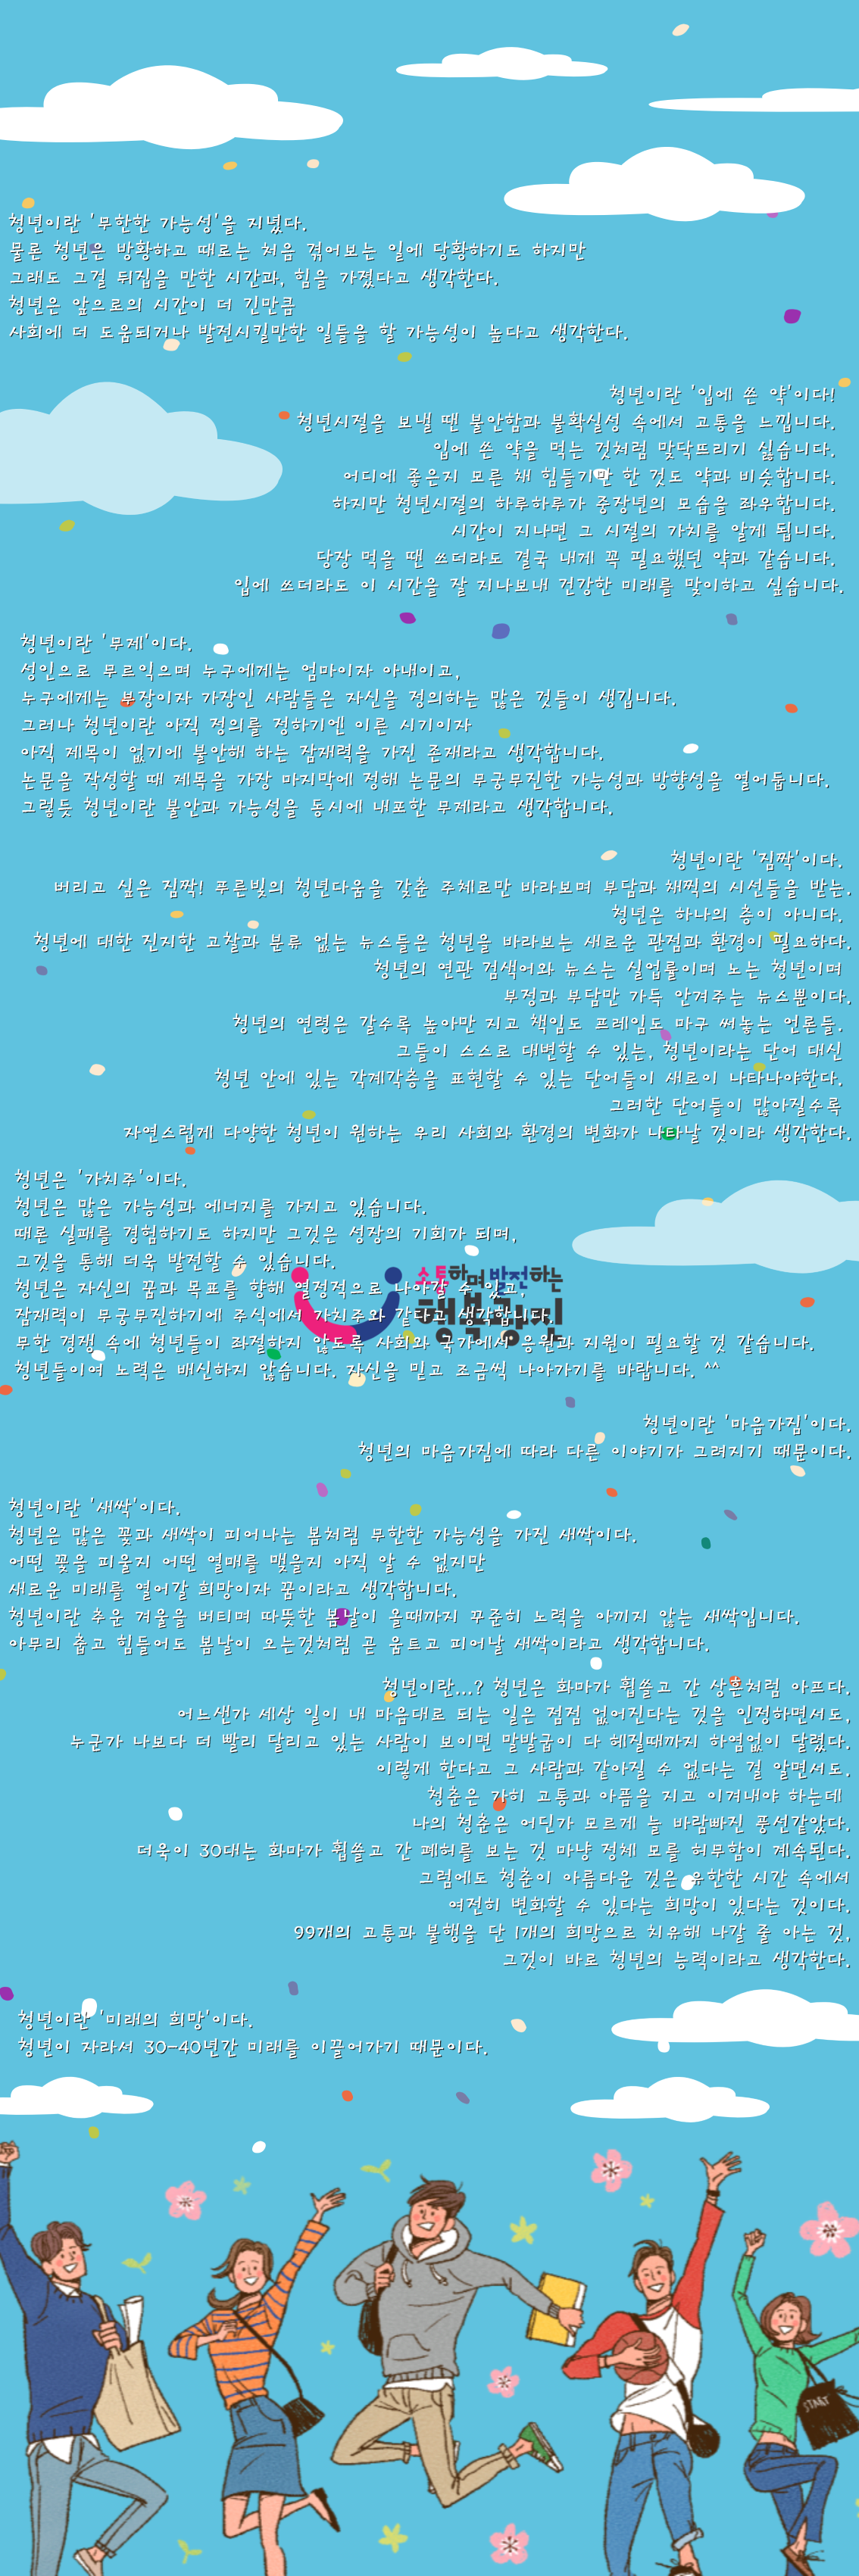 청년이란 '무한한 가능성'을 지녔다.
물론 청년은 방황하고 때로는 처음 겪어보는 일에 당황하기도 하지만
그래도 그걸 뒤집을 만한 시간과, 힘을 가졌다고 생각한다.
청년은 앞으로의 시간이 더 긴만큼
사회에 더 도움되거나 발전시킬만한 일들을 할 가능성이 높다고 생각한다.
청년이란 '입에 쓴 약'이다!
청년시절을 보낼 땐 불안함과 불확실성 속에서 고통을 느낍니다.
입에 쓴 약을 먹는 것처럼 맞닥뜨리기 싫습니다.
어디에 좋은지 모른 채 힘들기만 한 것도 약과 비슷합니다.
하지만 청년시절의 하루하루가 중장년의 모습을 좌우합니다.
시간이 지나면 그 시절의 가치를 알게 됩니다.
당장 먹을 땐 쓰더라도 결국 내게 꼭 필요했던 약과 같습니다.
입에 쓰더라도 이 시간을 잘 지나보내 건강한 미래를 맞이하고 싶습니다.
청년이란 '무제'이다.
성인으로 무르익으며 누구에게는 엄마이자 아내이고,
누구에게는 부장이자 가장인 사람들은 자신을 정의하는 많은 것들이 생깁니다.
그러나 청년이란 아직 정의를 정하기엔 이른 시기이자
아직 제목이 없기에 불안해 하는 잠재력을 가진 존재라고 생각합니다.
논문을 작성할 때 제목을 가장 마지막에 정해 논문의 무궁무진한 가능성과 방향성을 열어둡니다.
그렇듯 청년이란 불안과 가능성을 동시에 내포한 무제라고 생각합니다.
청년이란 '짐짝'이다.
버리고 싶은 짐짝! 푸른빛의 청년다움을 갖춘 주체로만 바라보며 부담과 채찍의 시선들을 받는.
청년은 하나의 층이 아니다.
청년에 대한 진지한 고찰과 분류 없는 뉴스들은 청년을 바라보는 새로운 관점과 환경이 필요하다.
청년의 연관 검색어와 뉴스는 실업률이며 노는 청년이며
부정과 부담만 가득 안겨주는 뉴스뿐이다.
청년의 연령은 갈수록 높아만 지고 책임도 프레임도 마구 써놓는 언론들.
그들이 스스로 대변할 수 있는, 청년이라는 단어 대신
청년 안에 있는 각계각층을 표현할 수 있는 단어들이 새로이 나타나야한다.
그러한 단어들이 많아질수록
자연스럽게 다양한 청년이 원하는 우리 사회와 환경의 변화가 나타날 것이라 생각한다.
청년은 '가치주'이다.
청년은 많은 가능성과 에너지를 가지고 있습니다.
때론 실패를 경험하기도 하지만 그것은 성장의 기회가 되며,
그것을 통해 더욱 발전할 수 있습니다.
소통하며 발전하는
청년은 자신의 꿈과 목표를 향해 열정적으로 나아갈 수 있고,
잠재력이 무궁무진하기에 주식에서 가치주와 같다고 생각합니다.
무한 경쟁 속에 청년들이 좌절하지 않도록 사회와 국가에서 응원과 지원이 필요할 것 같습니다.
청년들이여 노력은 배신하지 않습니다. 자신을 믿고 조금씩 나아가기를 바랍니다. ^^
청년이란 '마음가짐'이다.
청년의 마음가짐에 따라 다른 이야기가 그려지기 때문이다.
청년이란 '새싹'이다.
청년은 많은 꽃과 새싹이 피어나는 봄처럼 무한한 가능성을 가진 새싹이다.
어떤 꽃을 피울지 어떤 열매를 맺을지 아직 알 수 없지만
새로운 미래를 열어갈 희망이자 꿈이라고 생각합니다.
청년이란 추운 겨울을 버티며 따뜻한 봄날이 올때까지 꾸준히 노력을 아끼지 않는 새싹입니다.
아무리 춥고 힘들어도 봄날이 오는것처럼 곧 움트고 피어날 새싹이라고 생각합니다.
청년이란...? 청년은 화마가 휩쓸고 간 상흔처럼 아프다.
어느샌가 세상 일이 내 마음대로 되는 일은 점점 없어진다는 것을 인정하면서도,
누군가 나보다 더 빨리 달리고 있는 사람이 보이면 말발굽이 다 헤질때까지 하염없이 달렸다.
이렇게 한다고 그 사람과 같아질 수 없다는 걸 알면서도.
청춘은 가히 고통과 아픔을 지고 이겨내야 하는데
나의 청춘은 어딘가 모르게 늘 바람빠진 풍선같았다.
더욱이 30대는 화마가 휩쓸고 간 폐허를 보는 것 마냥 정체 모를 허무함이 계속된다.
그럼에도 청춘이 아름다운 것은 유한한 시간 속에서
여전히 변화할 수 있다는 희망이 있다는 것이다.
99개의 고통과 불행을 단 1개의 희망으로 치유해 나갈 줄 아는 것,
그것이 바로 청년의 능력이라고 생각한다.
청년이란 '미래의 희망'이다.
청년이 자라서 30-40년간 미래를 이끌어가기 때문이다.
START